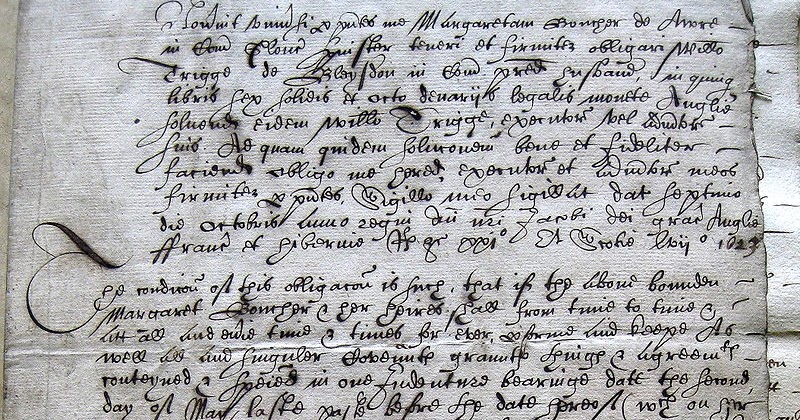 Noverint universi p pntes me Margaretam Boucher de Awre
in Com Glouc teneri et firmiter obligari Willo
Trigge de Bleysdon in Com pred husband, in quinq
libris sex solidis et octo denarijs legalis monete Anglie
solvend eidem Willo Trigge, executor vel
suis Ad quam quidem soluconem bene et fideliter
faciend obligo me hered, executor et meos
firmiter p pntes, Sigillo meo sigillat dat septimo
die Octobris Anno regni dni nri Jacobi dei grac Anglie
ffranc et hibernie Rgs xxi° Et Scotie lvij° 1623
The condicon of this obligacon is such, that if the above bounden
Margaret Boucher & her heires, shall from time to time &
att all and time & times for ever, pforme and keepe As
well all and singuler Covennts graunts & agreemts
conteyned & in one Indenture bearinge date the second
day of May laste past before the date hereof